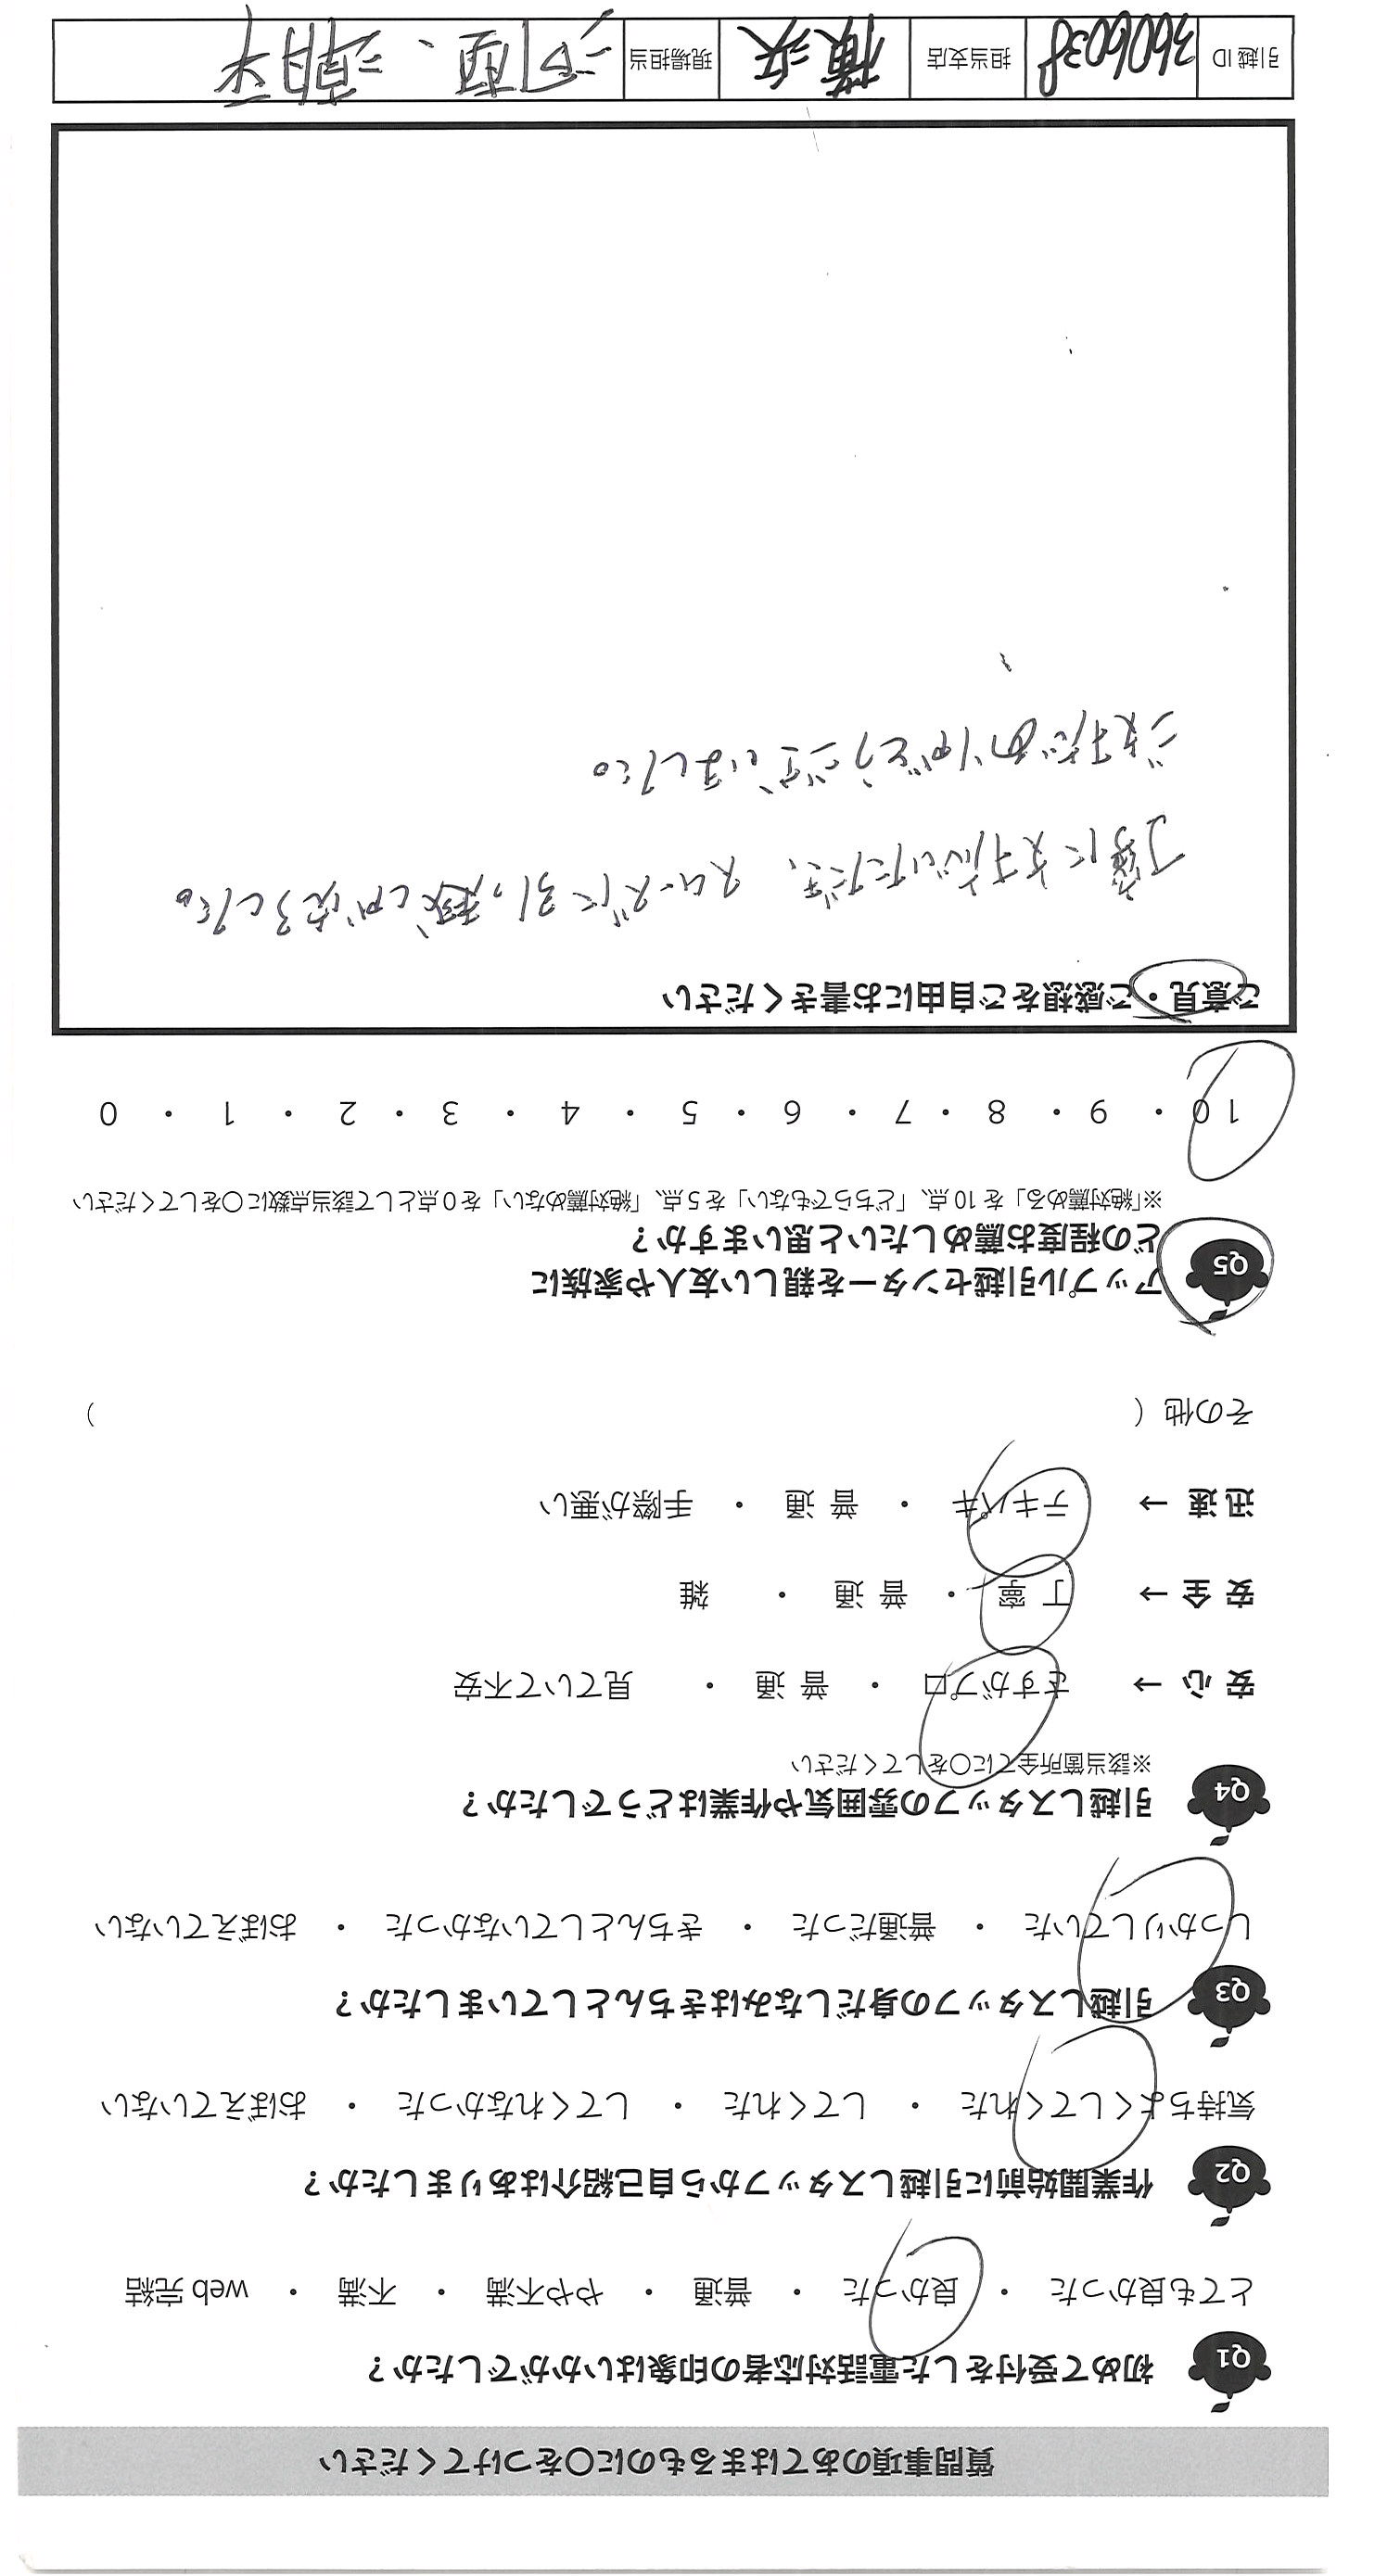 質問事項のあてはまるものに○をつけてください
Q1 初めて受付をした電話対応者の印象はいかがでしたか？
とても良かった ・ 良かった ・ 普通 ・ やや不満 ・ 不満 ・ web 完結
Q2 作業開始前に引越しスタッフから自己紹介はありましたか？
気持ちよくしてくれた ・ してくれた ・ してくれなかった ・ おぼえていない
Q3 引越しスタッフの身だしなみはきちんとしていましたか？
しっかりしていた ・ 普通だった ・ きちんとしていなかった ・ おぼえていない
Q4 引越しスタッフの雰囲気や作業はどうでしたか？
※該当箇所全てに○をしてください
安 心 → さすがプロ ・ 普 通 ・ 見ていて不安
安 全 → 丁 寧 ・ 普 通 ・ 雑
迅 速 → テキパキ ・ 普 通 ・ 手際が悪い
その他（ ）
Q5 アップル引越センターを親しい友人や家族に
どの程度お薦めしたいと思いますか？
※「絶対薦める」を 10 点、「どちらでもない」を 5 点、「絶対薦めない」を 0 点として該当点数に○をしてください
10 ・ 9 ・ 8 ・ 7 ・ 6 ・ 5 ・ 4 ・ 3 ・ 2 ・ 1 ・ 0
ご意見・ご感想をご自由にお書きください
丁寧に対応いただき、スムーズに引っ越しが
ありがとうございました。
引越 ID 3606038 担当支店 横浜 現場担当